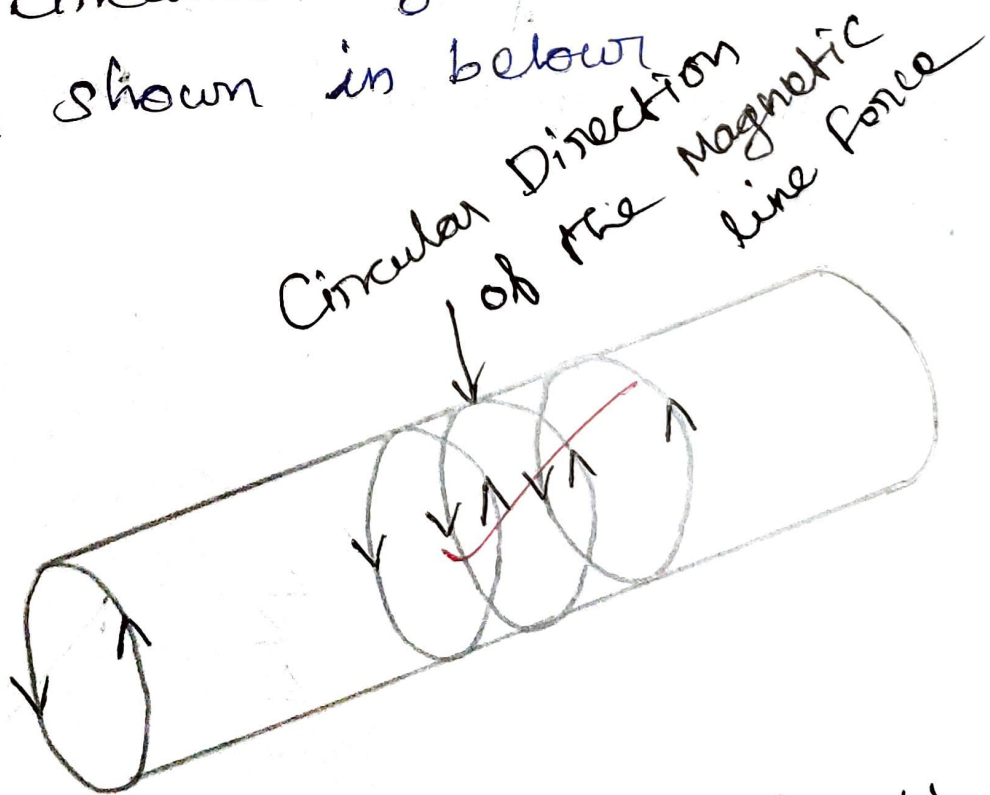 shown in below
Circular Direction
of the Magnetic
line Force